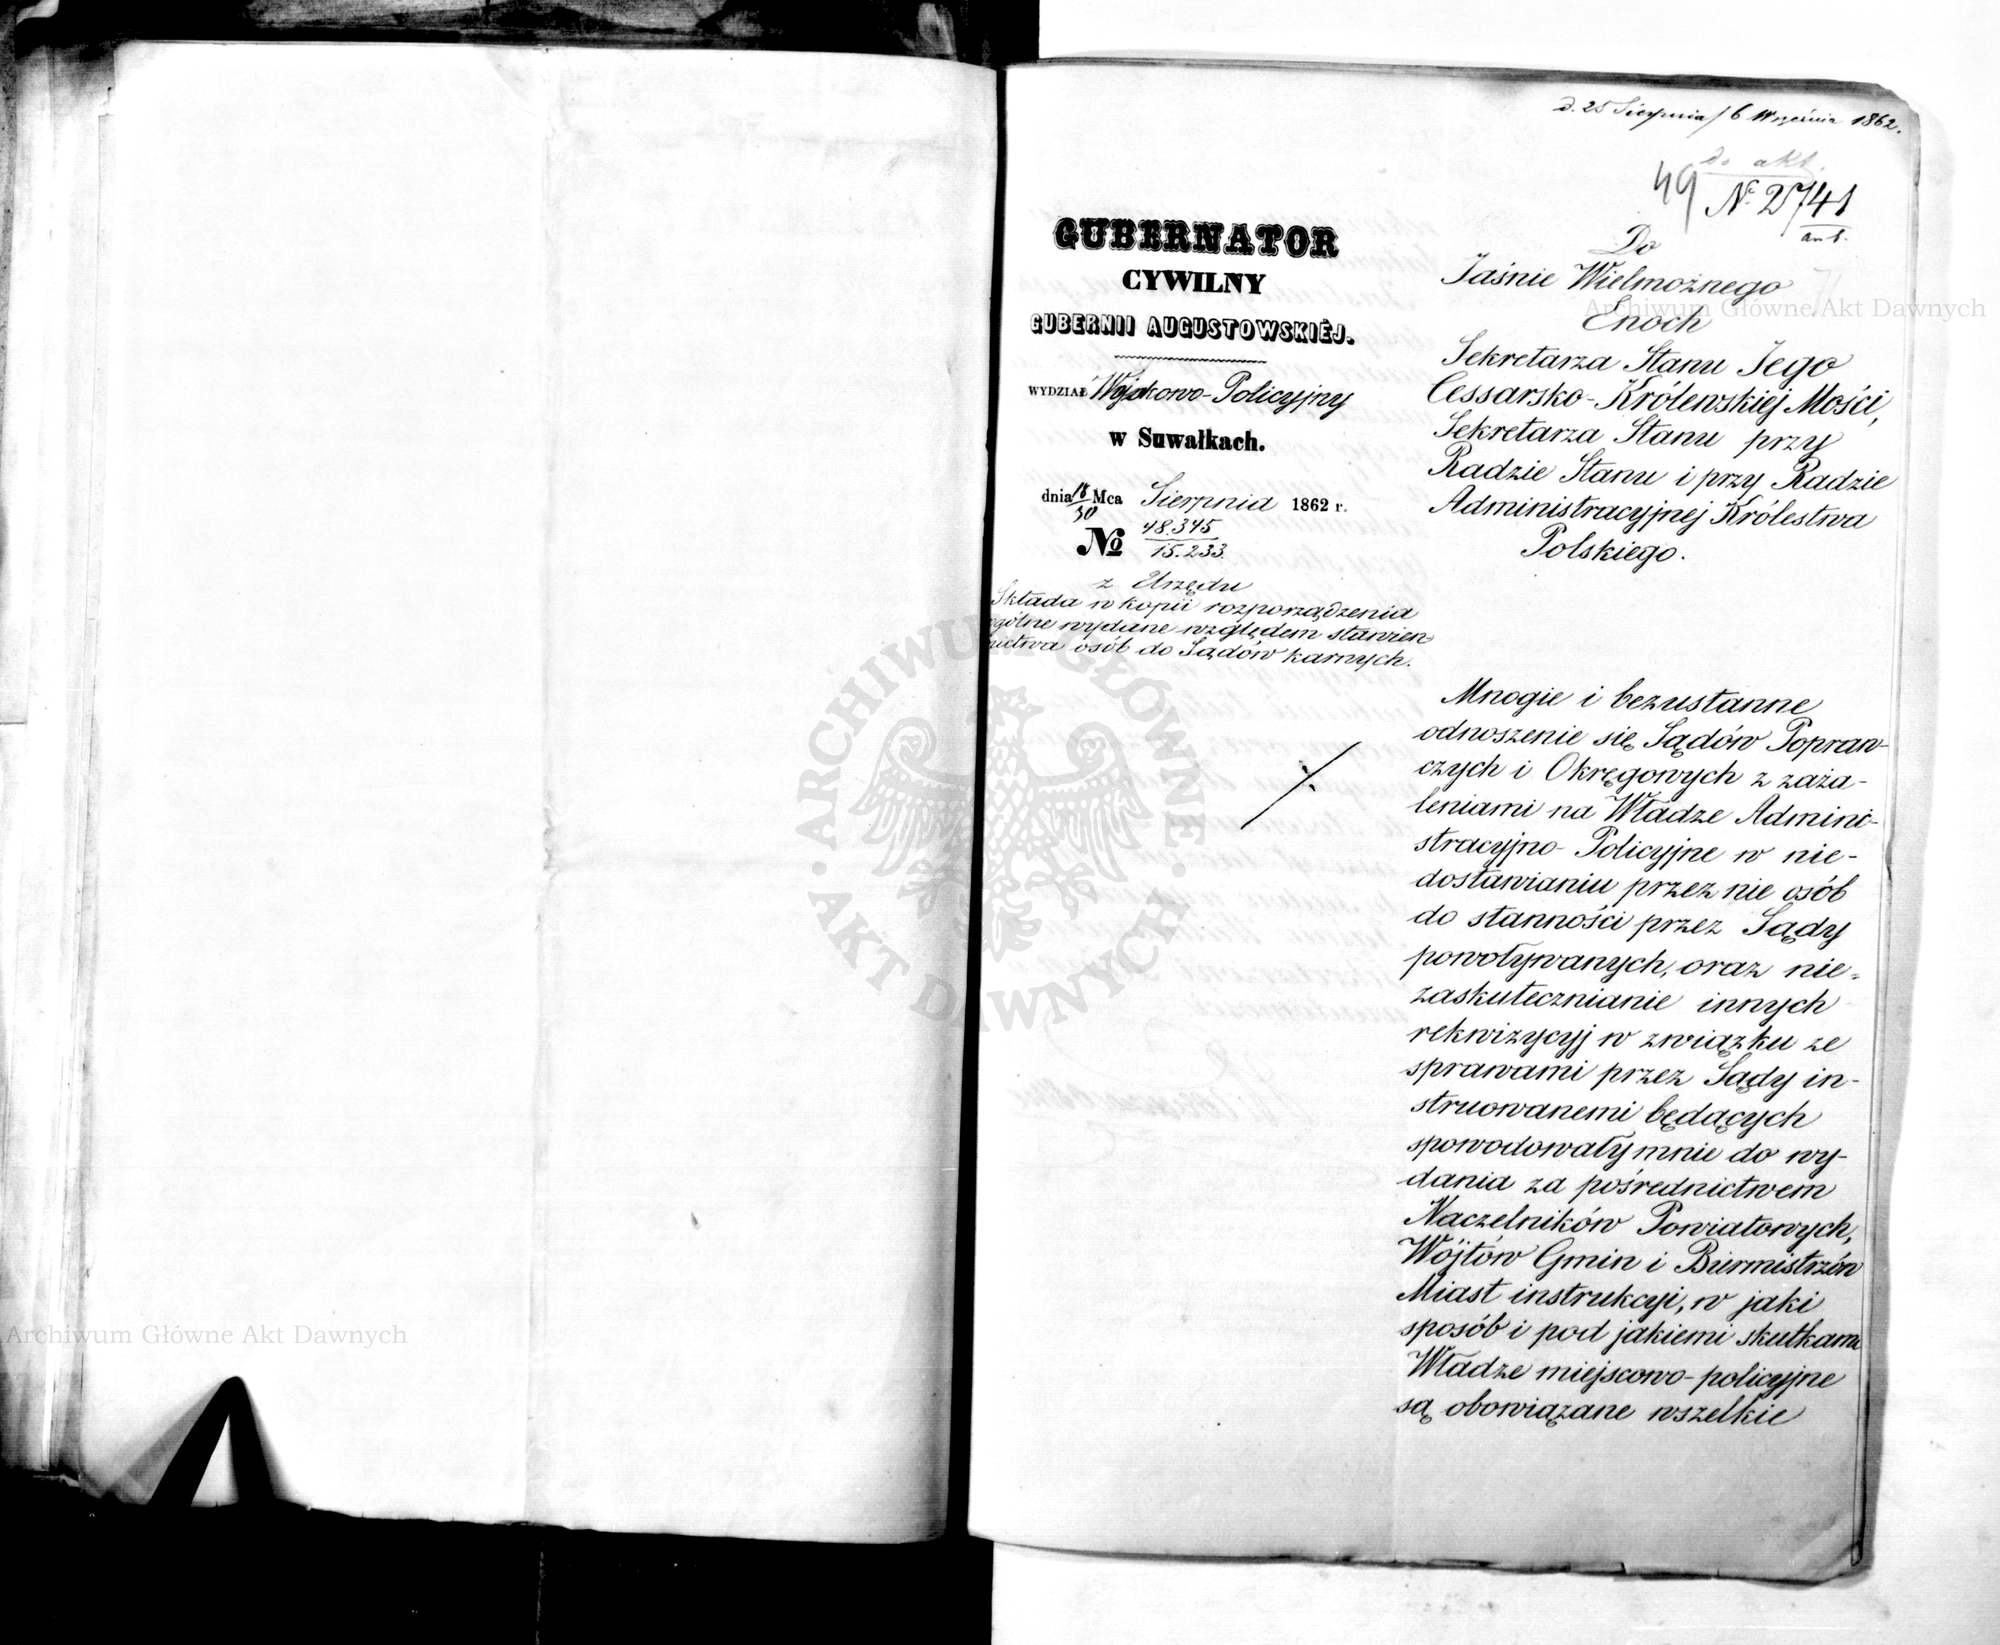 d. 25 Sierpnia / 6 Września 1862.
do akt.
49 № 2741
ant.
GUBERNATOR
CYWILNY
GUBERNII AUGUSTOWSKIÉJ.
WYDZIAŁ Wojskowo-Policyjny
w Suwałkach.
dnia 18/30 Mca Sierpnia 1862 r.
№ 48.345
15.233.
z Urzędu
Składa w kopii rozporządzenia
ogólne wydane względem stawien
nictwa osób do Sądów karnych.
Do
Jaśnie Wielmożnego
Enoch
Sekretarza Stanu Jego
Cessarsko-Królewskiéj Mości,
Sekretarza Stanu przy
Radzie Stanu i przy Radzie
Administracyjnej Królestwa
Polskiego.
Mnogie i bezustanne
odnoszenie się Sądów Popraw-
czych i Okręgowych z zaża-
leniami na Władze Admini-
stracyjno-Policyjne w nie-
dostawianiu przez nie osób
do stanności przez Sądy
powoływanych, oraz nie-
zaskutecznianie innych
rekwizycyj w związku ze
sprawami przez Sądy in-
struowanemi będących
spowodowały mnie do wy-
dania za pośrednictwem
Naczelników Powiatowych,
Wójtów Gmin i Burmistrzów
Miast instrukcyi, w jaki
sposób i pod jakiemi skutkami
Władze miejscowo-policyjne
są obowiązane wszelkie
Archiwum Główne Akt Dawnych
Archiwum Główne Akt Dawnych
ARCHIWUM GŁÓWNE · AKT DAWNYCH ·